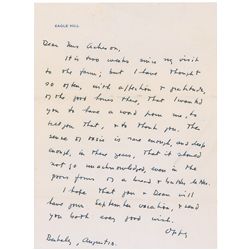 EAGLE HILL
Dear Mrs Acheson,
It is two weeks since my visit
to the farm; but I have thought
so often, with affection & gratitude,
of the good times there, that I wanted
you to have a word from me, to
tell you that, & to thank you. The
sense of oasis is rare enough, and deep
enough, in these years, that it should
not go unacknowledged, even in the
poor forms of a bread & butter letter.
I hope that you & Dean will
have your September vacation, & send
you both every good wish.
Oppy
Berkeley, August 18.